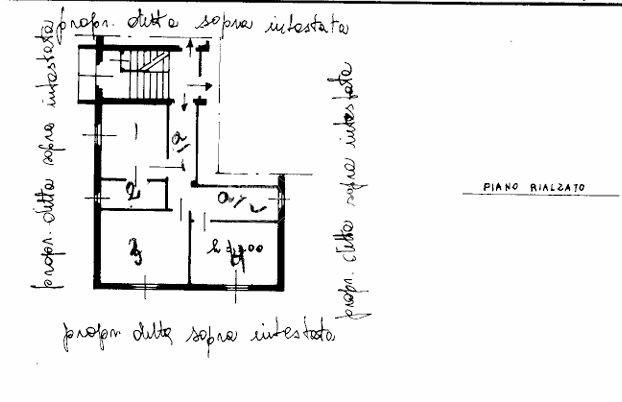 propr. ditta sopra intestata
propr. ditta sopra intestata
propr. ditta sopra intestata
PIANO RIALZATO
1
2
3
4
propr. ditta sopra intestata